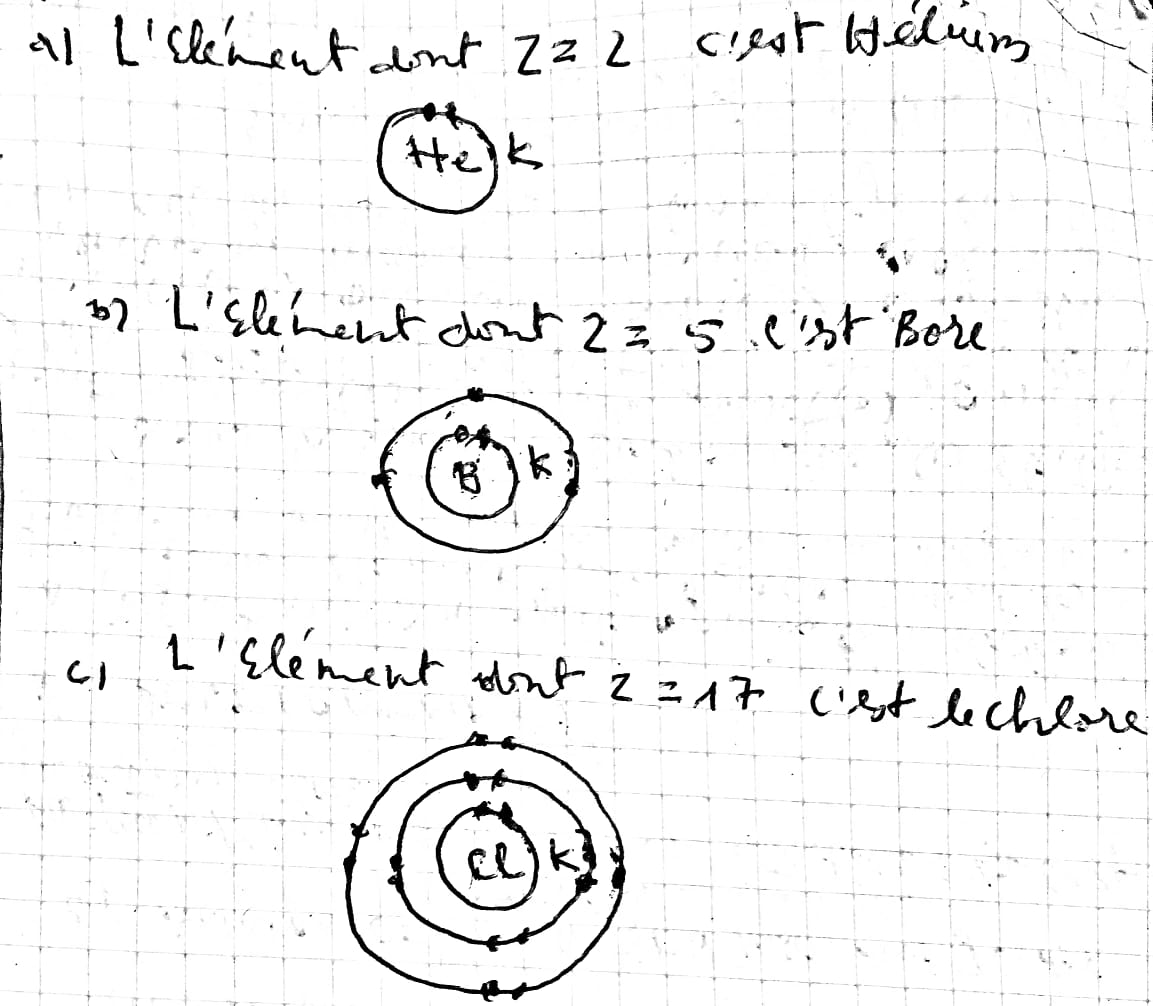 a) L'Elément dont Z = 2 c'est Hélium
He K
b) L'Elément dont Z = 5 c'est Bore
B K
c) L'Elément dont Z = 17 c'est le chlore
Cl K